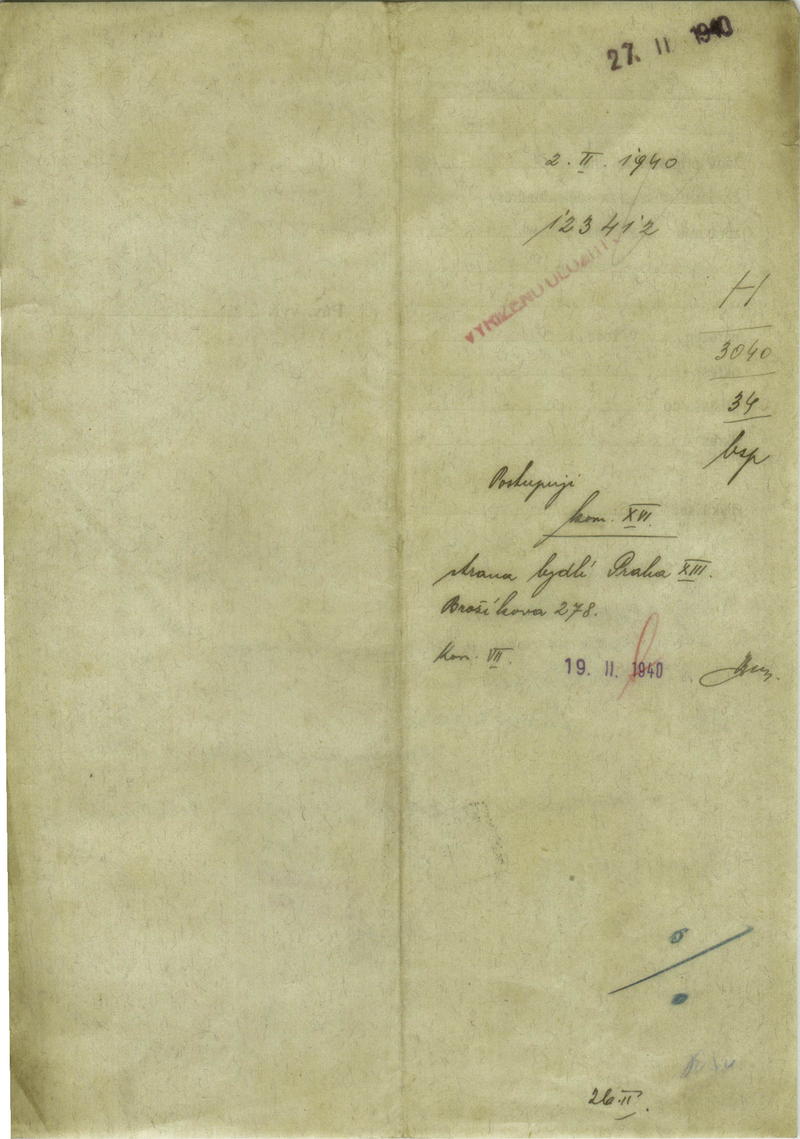 27. II 1940
2. II. 1940
123412
VYŘÍZENO ULOŽITI
H
3040
34
bsp
Postupuji
kom. XVI.
strana bydlí Praha XIII.
Brožíkova 278.
Kom. VII.
19. II. 1940
26.II.